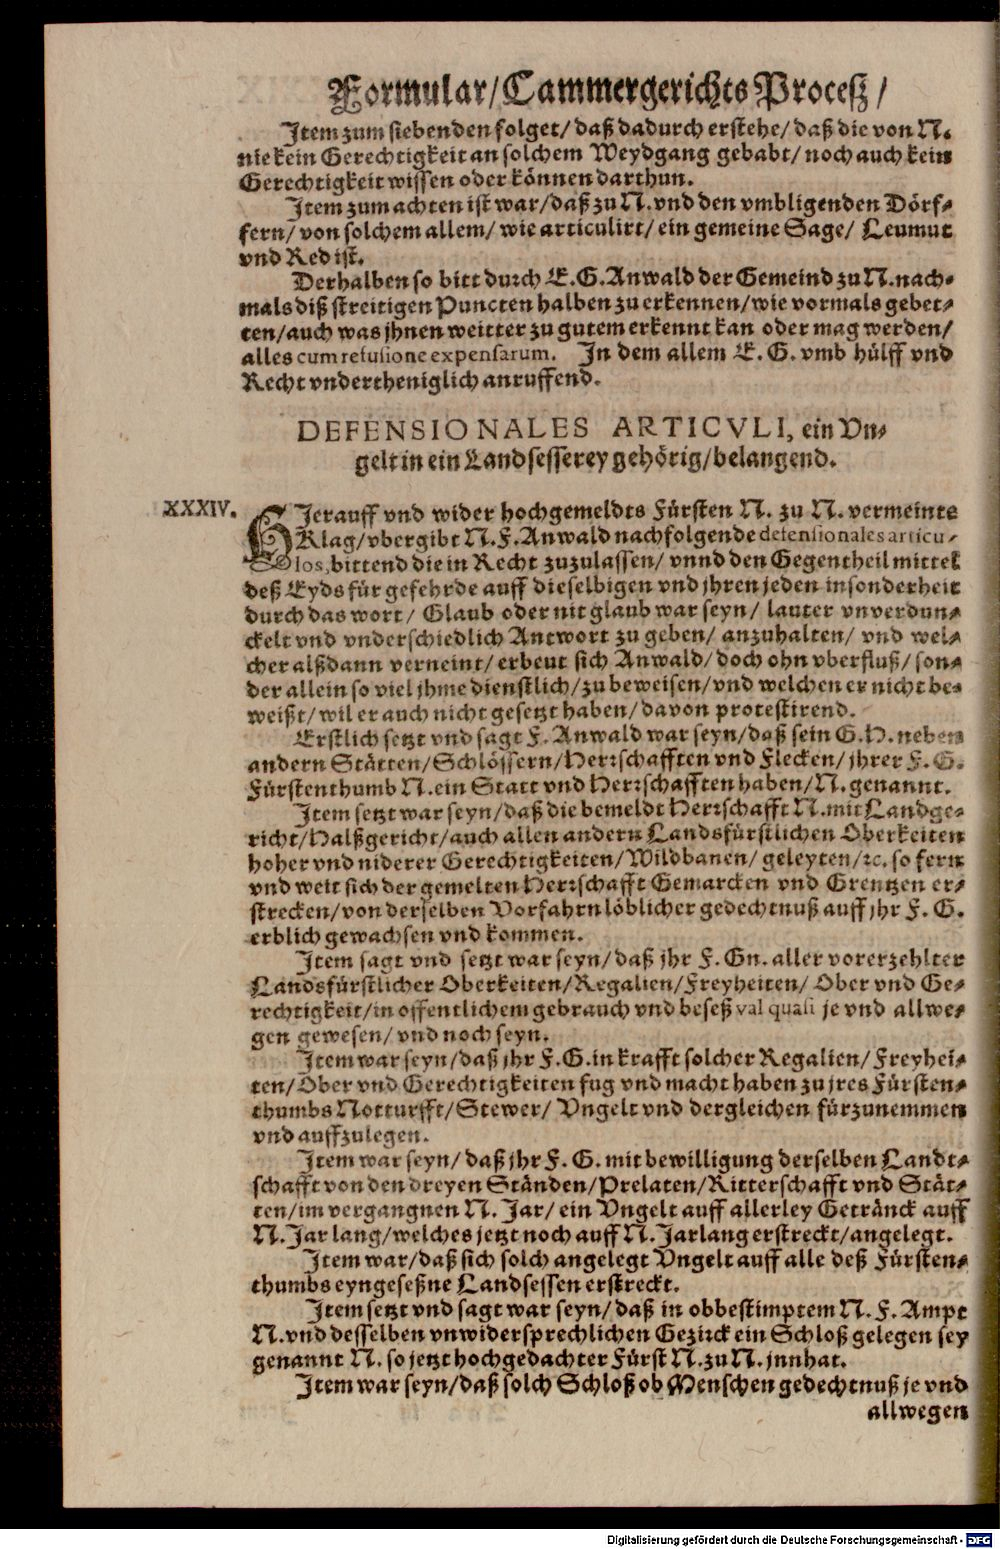 Formular/ Cammergerichts Proceß/
Item zum siebenden folget/ daß dadurch erstehe/ daß die von N.
nie kein Gerechtigkeit an solchem Weydgang gebabt/ noch auch kein
Gerechtigkeit wissen oder können darthun.
Item zum achten ist war/ daß zu N. vnd den vmbligenden Dörf-
fern/ von solchem allem/ wie articulirt/ ein gemeine Sage/ Leumut
vnd Red ist.
Derhalben so bitt durch E. G. Anwald der Gemeind zu N. nach-
mals diß streitigen Puncten halben zu erkennen/ wie vormals gebet-
ten/ auch was jhnen weitter zu gutem erkennt kan oder mag werden/
alles cum refusione expensarum. In dem allem E. G. vmb hülff vnd
Recht vndertheniglich anruffend.
DEFENSIONALES ARTICVLI, ein Vn-
gelt in ein Landsesserey gehörig/ belangend.
XXXIV. HIerauff vnd wider hochgemeldts Fürsten N. zu N. vermeinte
Klag/ vbergibt N. F. Anwald nachfolgende defensionales articu-
los, bittend die in Recht zuzulassen/ vnnd den Gegentheil mittel
deß Eyds für gefehrde auff dieselbigen vnd jhren jeden insonderheit
durch das wort/ Glaub oder nit glaub war seyn/ lauter vnverdun-
ckelt vnd vnderschiedlich Antwort zu geben/ anzuhalten/ vnd wel-
cher alßdann verneint/ erbeut sich Anwald/ doch ohn vberfluß/ son-
der allein so viel jhme dienstlich/ zu beweisen/ vnd welchen er nicht be-
weißt/ wil er auch nicht gesetzt haben/ davon protestirend.
Erstlich setzt vnd sagt F. Anwald war seyn/ daß sein G. H. neben
andern Stätten/ Schlössern/ Herrschafften vnd Flecken/ jhrer F. G.
Fürstenthumb N. ein Statt vnd Herrschafften haben/ N. genannt.
Item setzt war seyn/ daß die bemeldt Herrschafft N. mit Landge-
richt/ Halßgericht/ auch allen andern Landsfürstlichen Oberkeiten
hoher vnd niderer Gerechtigkeiten/ Wildbanen/ geleyten/ ꝛc. so fern
vnd weit sich der gemelten Herrschafft Gemarcken vnd Grentzen er-
strecken/ von derselben Vorfahrn löblicher gedechtnuß auff jhr F. G.
erblich gewachsen vnd kommen.
Item sagt vnd setzt war seyn/ daß jhr F. Gn. aller vorerzehlter
Landsfürstlicher Oberkeiten/ Regalien/ Freyheiten/ Ober vnd Ge-
rechtigkeit/ in offentlichem gebrauch vnd beseß val quasi je vnd allwe-
gen gewesen/ vnd noch seyn.
Item war seyn/ daß jhr F. G. in krafft solcher Regalien/ Freyhei-
ten/ Ober vnd Gerechtigkeiten fug vnd macht haben zu jres Fürsten-
thumbs Notturfft/ Stewer/ Vngelt vnd dergleichen fürzunemmen
vnd auffzulegen.
Item war seyn/ daß jhr F. G. mit bewilligung derselben Landt-
schafft von den dreyen Ständen/ Prelaten/ Ritterschafft vnd Stät-
ten/ im vergangnen N. Jar/ ein Vngelt auff allerley Getränck auff
N. Jar lang/ welches jetzt noch auff N. Jar lang erstreckt/ angelegt.
Item war/ daß sich solch angelegt Vngelt auff alle deß Fürsten-
thumbs eyngeseßne Landsessen erstreckt.
Item setzt vnd sagt war seyn/ daß in obbestimptem N. F. Ampt
N. vnd desselben vnwidersprechlichen Gezirck ein Schloß gelegen sey
genannt N. so jetzt hochgedachter Fürst N. zu N. jnnhat.
Item war seyn/ daß solch Schloß ob Menschen gedechtnuß je vnd
allwegen
Digitalisierung gefördert durch die Deutsche Forschungsgemeinschaft - DFG